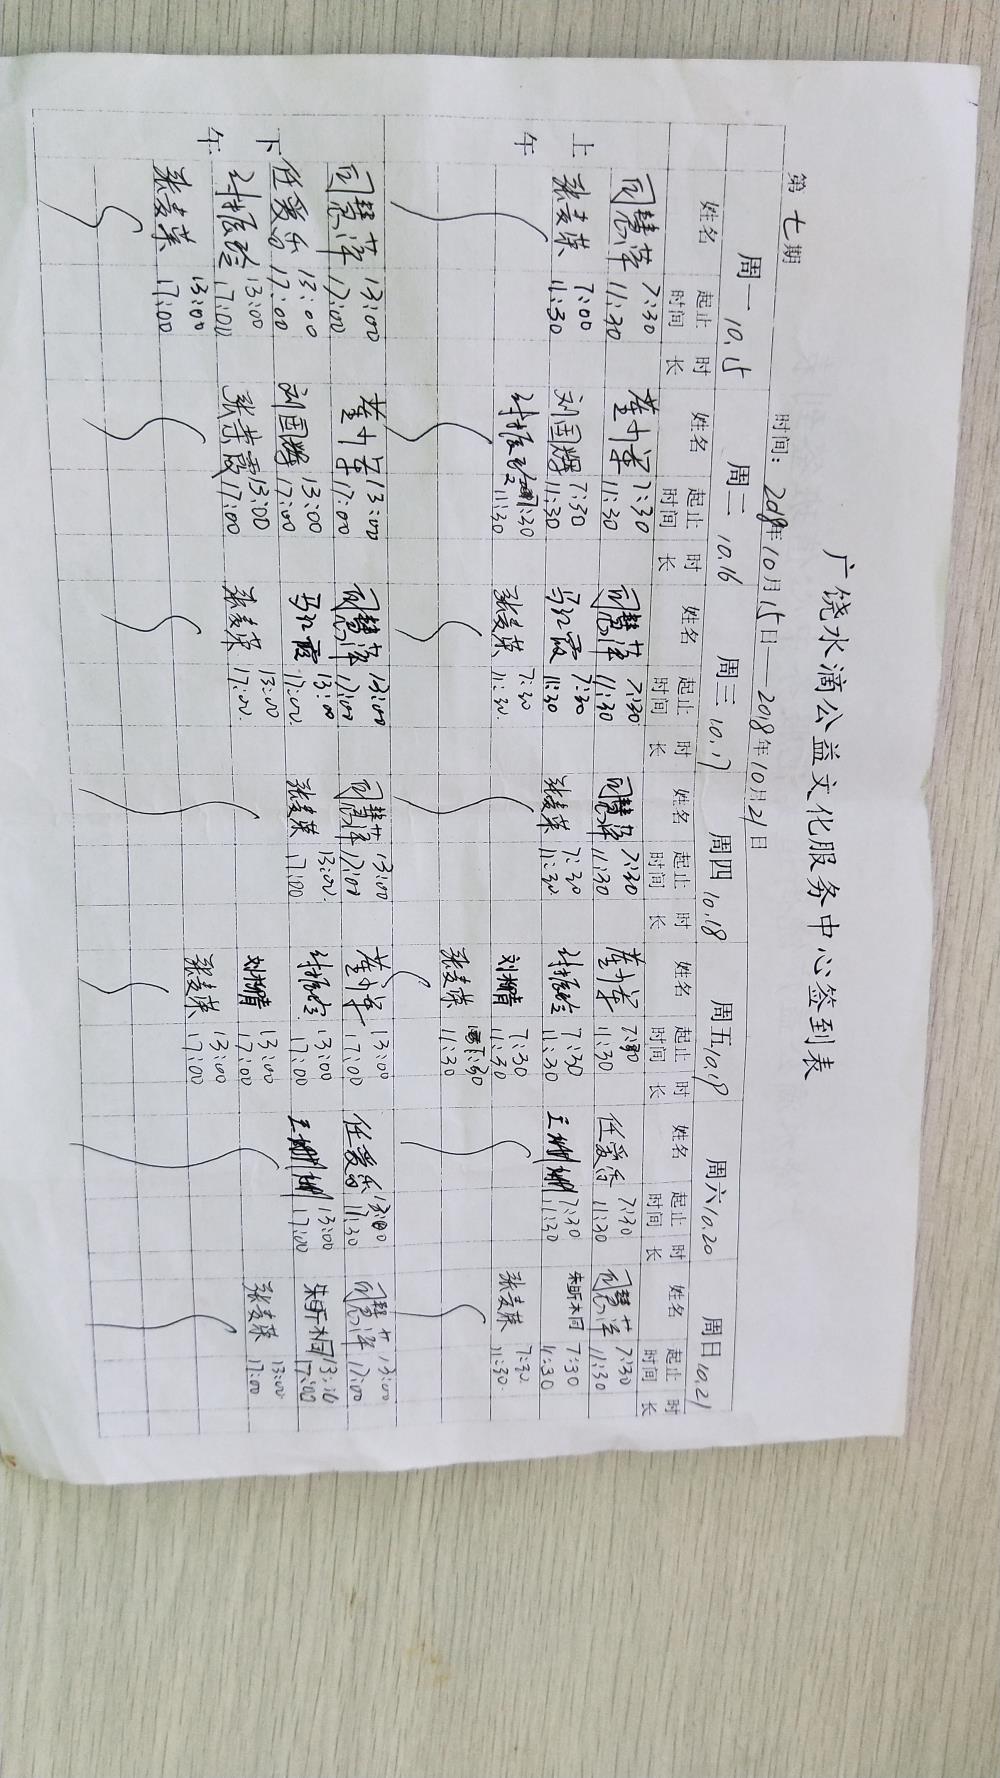 广饶水滴公益文化服务中心签到表
第七期 时间：2018年10月15日——2018年10月21日
周一 10.15 周二 10.16 周三 10.17 周四 10.18 周五 10.19 周六 10.20 周日 10.21
姓名 起止时间 时长 姓名 起止时间 时长 姓名 起止时间 时长 姓名 起止时间 时长 姓名 起止时间 时长 姓名 起止时间 时长 姓名 起止时间 时长
上午
7:30 11:30 7:30 11:30 7:30 11:30 7:30 11:30 7:30 11:30 任爱乐 7:30 11:30 7:30 11:30
张麦荣 7:00 11:30 刘国辉 7:30 11:30 马红霞 7:30 11:30 张麦荣 7:30 11:30 7:30 11:30 王姗姗 7:30 11:30 朱昕桐 7:30 11:30
7:30 11:30 张麦荣 7:30 11:30 刘树青 7:30 11:30 张麦荣 7:30 11:30
张麦荣 7:30 11:30
下午
13:00 17:00 13:00 17:00 13:00 17:00 13:00 17:00 13:00 17:00 任爱乐 13:00 11:30 13:00 17:00
任爱乐 13:00 17:00 刘国辉 13:00 17:00 马红霞 13:00 17:00 张麦荣 13:00 17:00 13:00 17:00 王姗姗 13:00 17:00 朱昕桐 13:10 17:00
13:00 17:00 13:00 17:00 张麦荣 13:00 17:00 刘树青 13:00 17:00 张麦荣 13:00 17:00
张麦荣 13:00 17:00 张麦荣 13:00 17:00